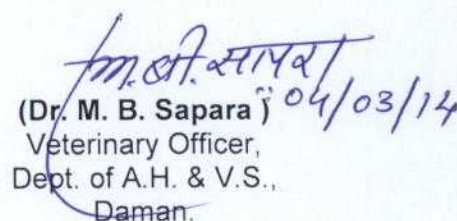 एम.बी.सापरा
04/03/14
(Dr. M. B. Sapara )
Veterinary Officer,
Dept. of A.H. & V.S.,
Daman.